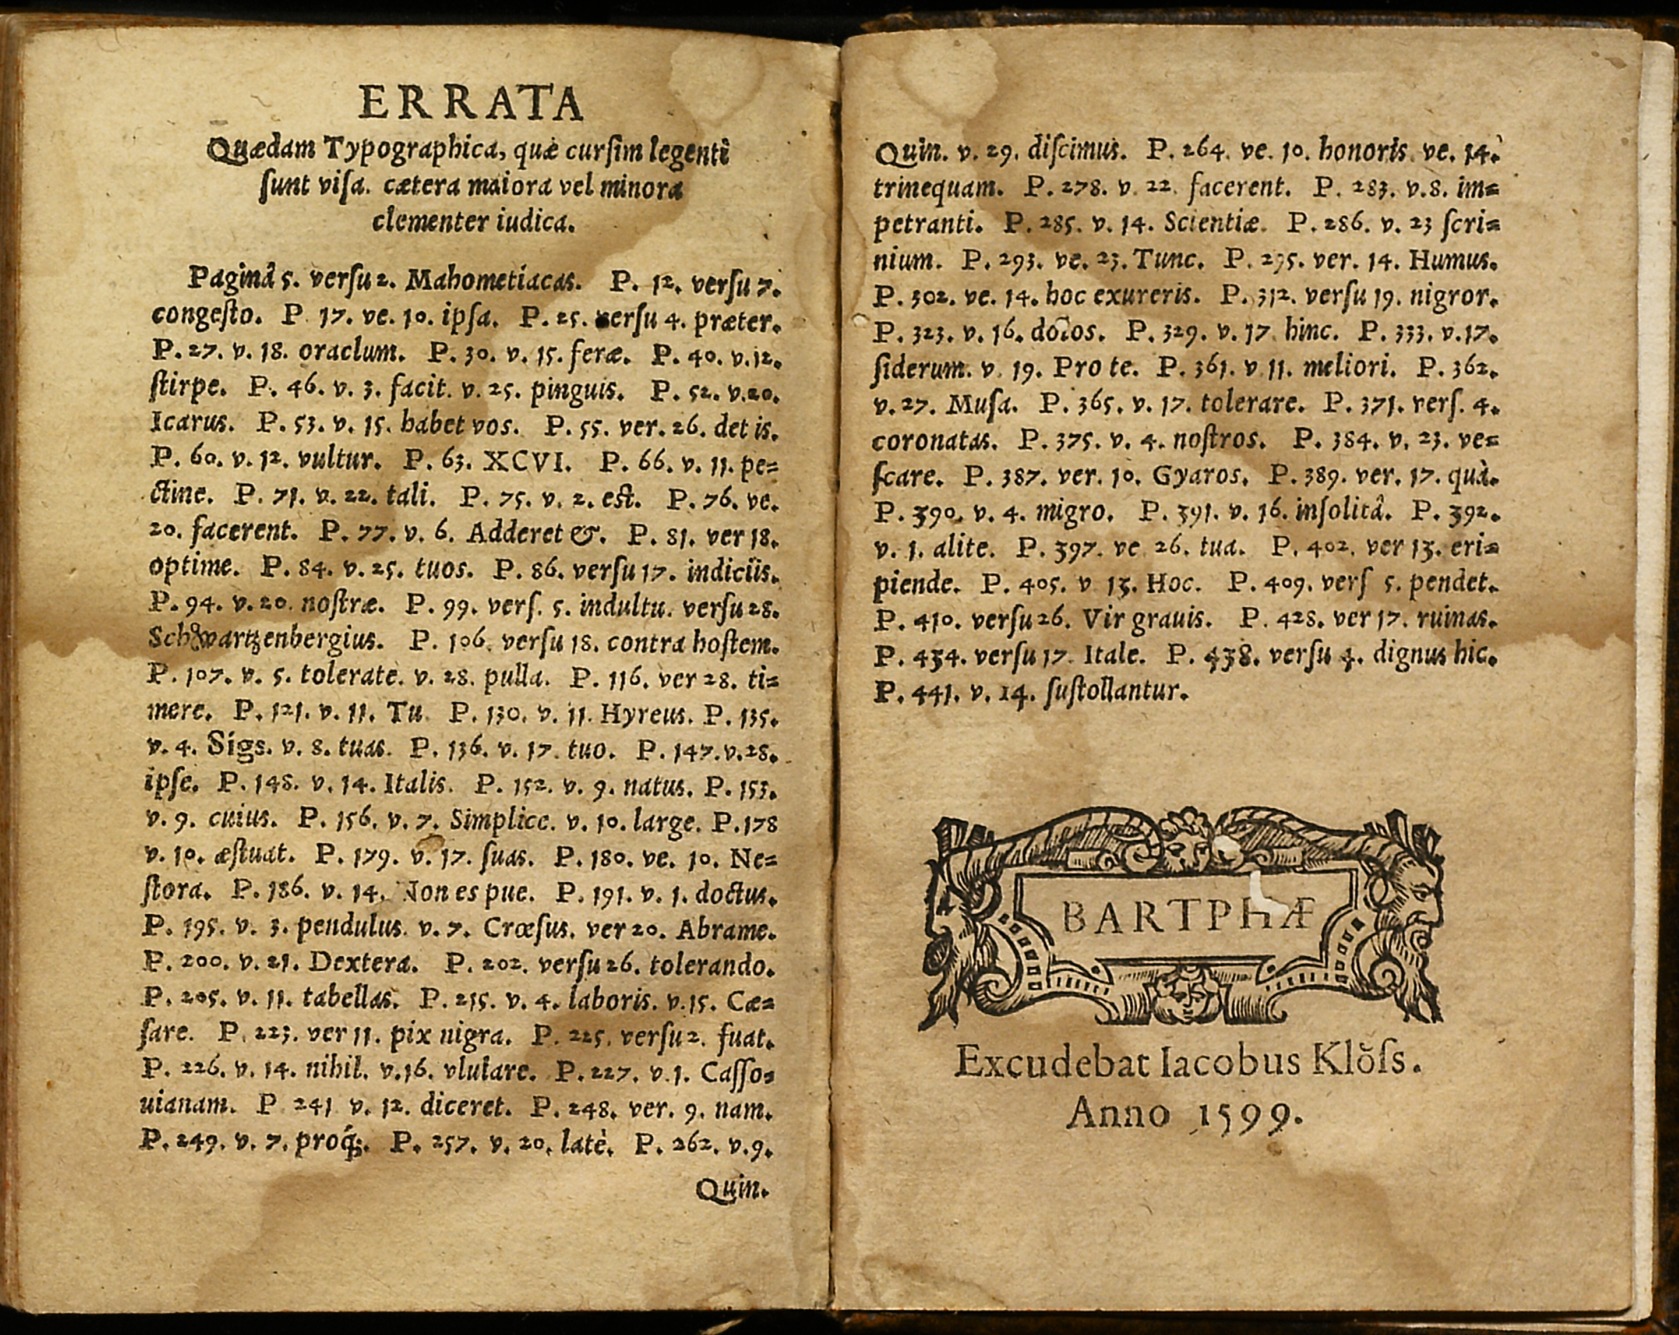 ERRATA
Quædam Typographica, quæ curſim legenti
ſunt viſa. cætera maiora vel minora
clementer iudica.
Paginâ 5. verſu 2. Mahometiacas. P. 12. verſu 7.
congeſto. P 17. ve. 10. ipſa. P. 25. verſu 4. præter.
P. 27. v. 18. oraclum. P. 30. v. 15. feræ. P. 40. v. 12.
ſtirpe. P. 46. v. 3. facit. v. 25. pinguis. P. 52. v. 20.
Icarus. P. 53. v. 15. habet vos. P. 55. ver. 26. det is.
P. 60. v. 12. vultur. P. 63. XCVI. P. 66. v. 11. pe=
ctine. P. 71. v. 22. tali. P. 75. v. 2. eſt. P. 76. ve.
20. facerent. P. 77. v. 6. Adderet &. P. 81. ver 18.
optime. P. 84. v. 25. tuos. P. 86. verſu 17. indiciis.
P. 94. v. 20. noſtræ. P. 99. verſ. 5. indultu. verſu 28.
Schwartzenbergius. P. 106. verſu 18. contra hoſtem.
P. 107. v. 5. tolerate. v. 28. pulla. P. 116. ver 28. ti=
mere. P. 121. v. 11. Tu P. 130. v. 11. Hyreus. P. 135.
v. 4. Sigs. v. 8. tuas. P. 136. v. 17. tuo. P. 147. v. 28.
ipſe. P. 148. v. 14. Italis. P. 152. v. 9. natus. P. 153.
v. 9. cuius. P. 156. v. 7. Simplice. v. 10. large. P. 178
v. 10. æſtuat. P. 179. v. 17. ſuas. P. 180. ve. 10. Ne=
ſtora. P. 186. v. 14. Non es pue. P. 191. v. 1. doctus.
P. 195. v. 3. pendulus. v. 7. Crœſus. ver 20. Abrame.
P. 200. v. 21. Dextera. P. 202. verſu 26. tolerando.
P. 205. v. 11. tabellas. P. 215. v. 4. laboris. v. 15. Cæ=
ſare. P. 223. ver 11. pix nigra. P. 225. verſu 2. fuat.
P. 226. v. 14. nihil. v. 16. vlulare. P. 227. v. 1. Caſſo=
uianam. P 241 v. 12. diceret. P. 248. ver. 9. nam.
P. 249. v. 7. proq́;. P. 257. v. 20. latè. P. 262. v. 9.
Quin.
Quin. v. 29. diſcimus. P. 264. ve. 10. honoris. ve. 14.
trinequam. P. 278. v. 22. facerent. P. 283. v. 8. im=
petranti. P. 285. v. 14. Scientiæ. P. 286. v. 23 ſcri=
nium. P. 293. ve. 23. Tunc. P. 295. ver. 14. Humus.
P. 302. ve. 14. hoc exureris. P. 312. verſu 19. nigror.
P. 323. v. 16. P. 329. v. 17. hinc. P. 333. v. 17.
ſiderum. v. 19. Pro te. P. 361. v 11. meliori. P. 362.
v. 27. Muſa. P. 365. v. 17. tolerare. P. 371. verſ. 4.
coronatas. P. 375. v. 4. noſtros. P. 384. v. 23. ve=
ſcare. P. 387. ver. 10. Gyaros. P. 389. ver. 17. quà.
P. 390. v. 4. migro. P. 391. v. 16. inſolitâ. P. 392.
v. 1. alite. P. 397. ve 26. tua. P. 402. ver 13. eri=
piende. P. 405. v 13. Hoc. P. 409. verſ 5. pendet.
P. 410. verſu 26. Vir grauis. P. 428. ver 17. ruinas.
P. 434. verſu 17. Itale. P. 438. verſu 4. dignus hic.
P. 441. v. 14. ſuſtollantur.
BARTPHÆ
Excudebat Iacobus Klöſs.
Anno 1599.